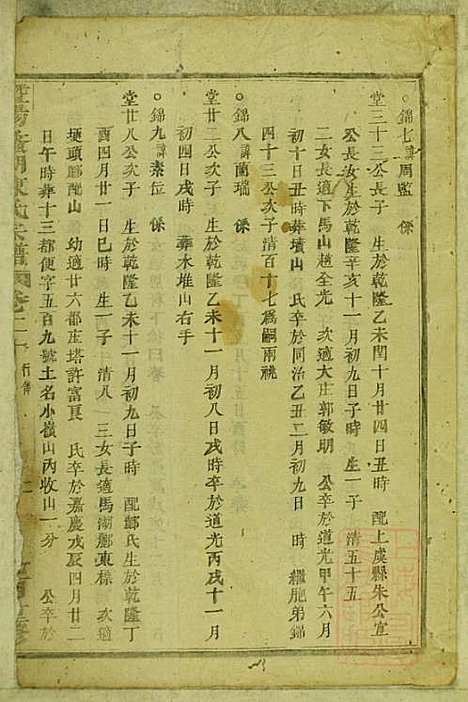 錦七諱周監 係
堂三十三公長子 生於乾隆乙未閏十月廿四日丑時 配上虞縣朱公宜
公長女生於乾隆辛亥十一月初九日子時 生一子 清五十五
二女長適下馬山趙全光 次適大庄郭敏明 公卒於道光甲午六月
初十日丑時葬墳山 氏卒於同治乙丑二月初九日 時 繼胞弟錦
四十三公次子清百十七為嗣兩祧
錦八諱蘭瑞 係
堂廿二公次子 生於乾隆乙未十一月初八日戌時卒於道光丙戌十一月
初四日戌時 葬水堆山右手
錦九諱素位 係
堂廿八公次子 生於乾隆乙未十一月初九日子時 配鄭氏生於乾隆丁
酉四月廿一日巳時 生一子 清八 三女長適馬湖鄭東標 次適
埂頭鄭 山 幼適廿六都庄塔許富 氏卒於嘉慶戊辰四月廿二
日午時葬十三都便字五百九號土名小嶺山丙收山一分 公卒於
湖東氏宗譜